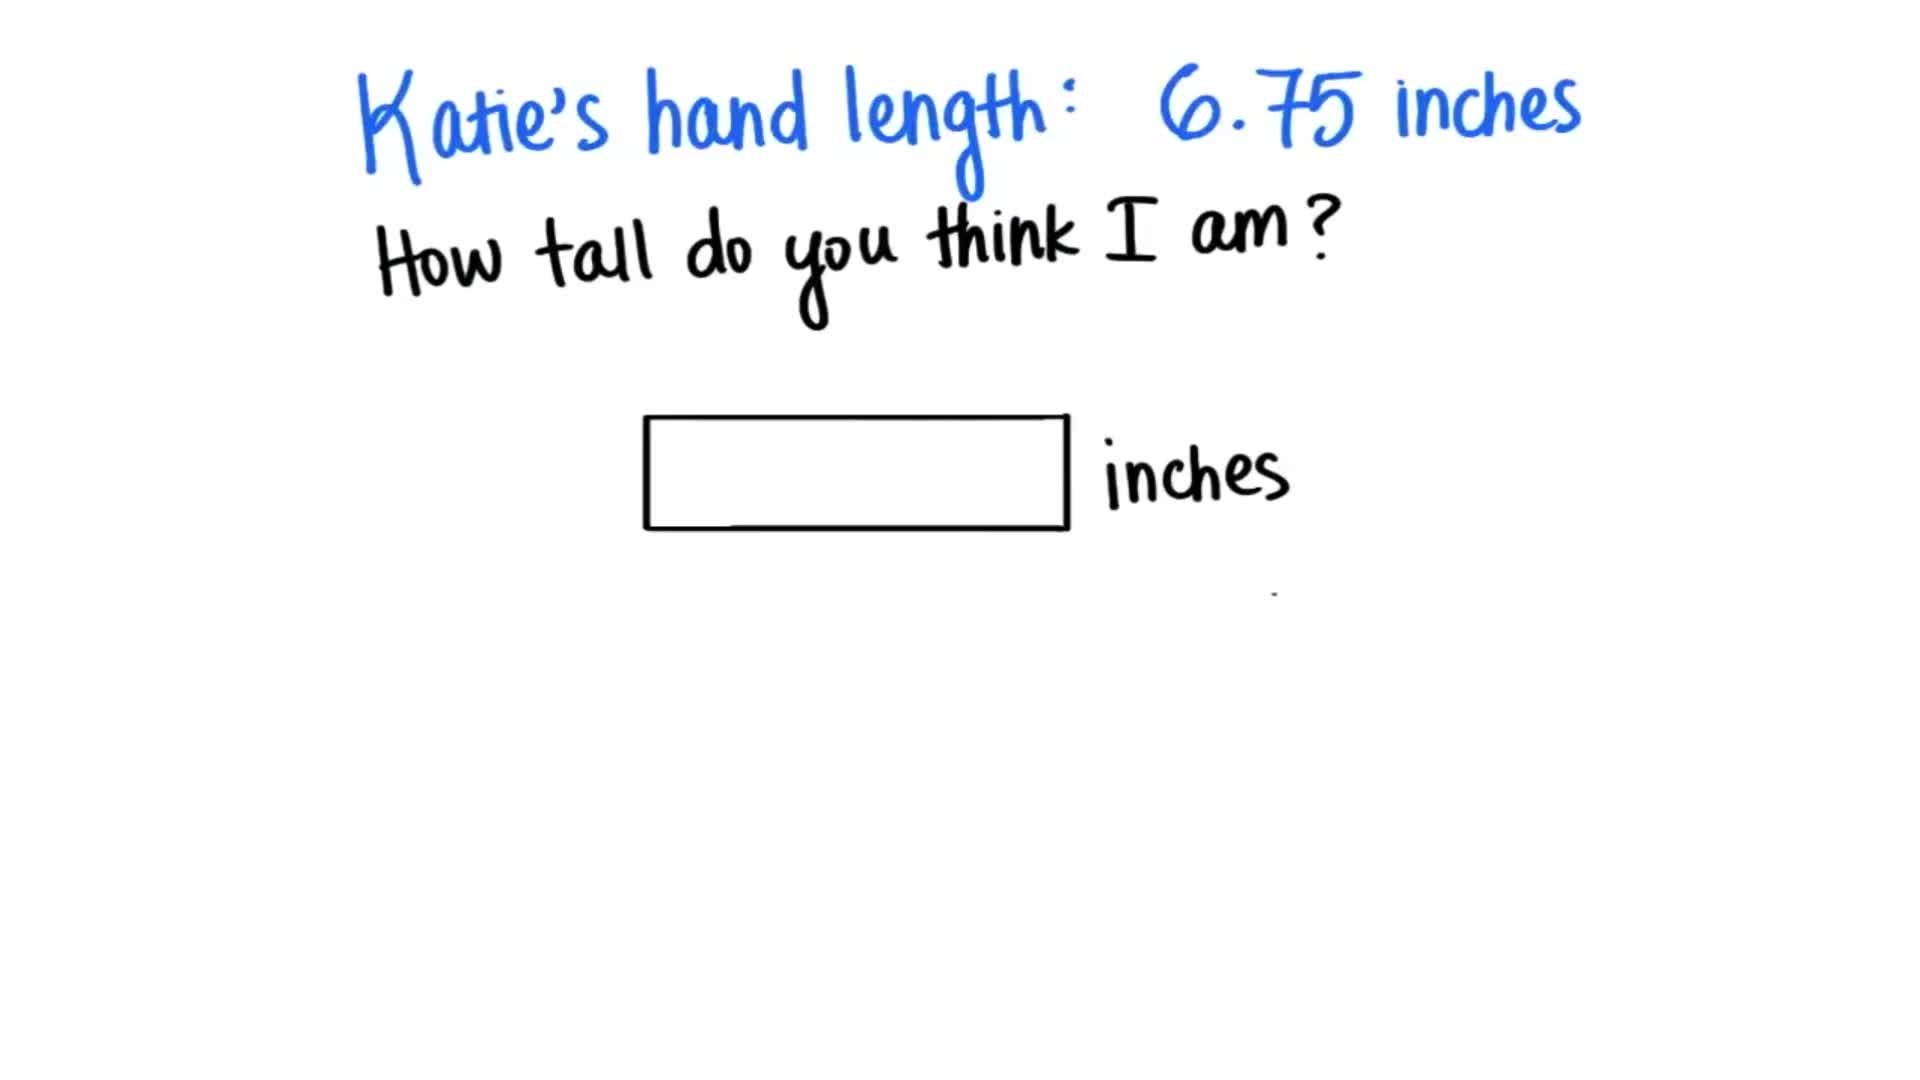 Katie's hand length: 6.75 inches
How tall do you think I am?
inches